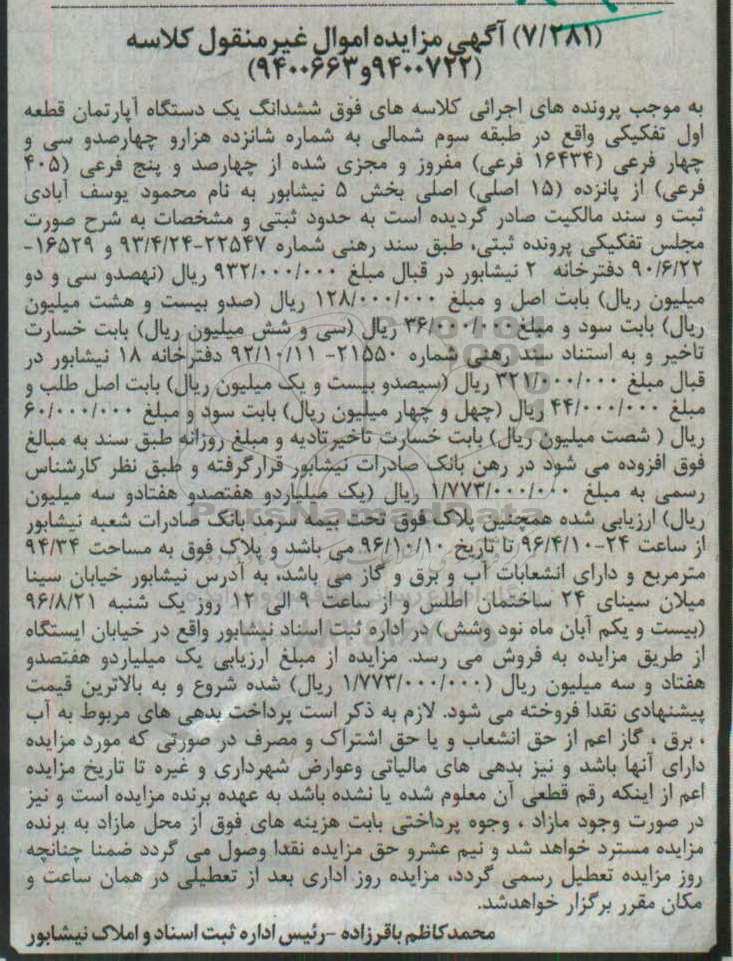 (۷/۲۸۱) آگهی مزایده اموال غیرمنقول کلاسه
(۹۴۰۰۷۲۲و۹۴۰۰۶۶۳)
به موجب پرونده های اجرائی کلاسه های فوق ششدانگ یک دستگاه آپارتمان قطعه
اول تفکیکی واقع در طبقه سوم شمالی به شماره شانزده هزارو چهارصدو سی و
چهار فرعی (۱۶۴۳۴ فرعی) مفروز و مجزی شده از چهارصد و پنج فرعی (۴۰۵
فرعی) از پانزده (۱۵ اصلی) اصلی بخش ۵ نیشابور به نام محمود یوسف آبادی
ثبت و سند مالکیت صادر گردیده است به حدود ثبتی و مشخصات به شرح صورت
مجلس تفکیکی پرونده ثبتی، طبق سند رهنی شماره ۲۲۵۴۷-۹۳/۴/۲۴ و ۱۶۵۲۹-
۹۰/۶/۲۲ دفترخانه ۲ نیشابور در قبال مبلغ ۹۳۲/۰۰۰/۰۰۰ ریال (نهصدو سی و دو
میلیون ریال) بابت اصل و مبلغ ۱۲۸/۰۰۰/۰۰۰ ریال (صدو بیست و هشت میلیون
ریال) بابت سود و مبلغ۳۶/۰۰۰/۰۰۰ ریال (سی و شش میلیون ریال) بابت خسارت
تاخیر و به استناد سند رهنی شماره ۲۱۵۵۰- ۹۲/۱۰/۱۱ دفترخانه ۱۸ نیشابور در
قبال مبلغ ۳۲۱/۰۰۰/۰۰۰ ریال (سیصدو بیست و یک میلیون ریال) بابت اصل طلب و
مبلغ ۴۴/۰۰۰/۰۰۰ ریال (چهل و چهار میلیون ریال) بابت سود و مبلغ ۶۰/۰۰۰/۰۰۰
ریال ( شصت میلیون ریال) بابت خسارت تاخیرتادیه و مبلغ روزانه طبق سند به مبالغ
فوق افزوده می شود در رهن بانک صادرات نیشابور قرارگرفته و طبق نظر کارشناس
رسمی به مبلغ ۱/۷۷۳/۰۰۰/۰۰۰ ریال (یک میلیاردو هفتصدو هفتادو سه میلیون
ریال) ارزیابی شده همچنین پلاک فوق تحت بیمه سرمد بانک صادرات شعبه نیشابور
از ساعت ۲۴-۹۶/۴/۱۰ تا تاریخ ۹۶/۱۰/۱۰ می باشد و پلاک فوق به مساحت ۹۴/۳۴
مترمربع و دارای انشعابات آب و برق و گاز می باشد، به آدرس نیشابور خیابان سینا
میلان سینای ۲۴ ساختمان اطلس و از ساعت ۹ الی ۱۲ روز یک شنبه ۹۶/۸/۲۱
(بیست و یکم آبان ماه نود وشش) در اداره ثبت اسناد نیشابور واقع در خیابان ایستگاه
از طریق مزایده به فروش می رسد. مزایده از مبلغ ارزیابی یک میلیاردو هفتصدو
هفتاد و سه میلیون ریال (۱/۷۷۳/۰۰۰/۰۰۰ ریال) شده شروع و به بالاترین قیمت
پیشنهادی نقدا فروخته می شود. لازم به ذکر است پرداخت بدهی های مربوط به آب
، برق ، گاز اعم از حق انشعاب و یا حق اشتراک و مصرف در صورتی که مورد مزایده
دارای آنها باشد و نیز بدهی های مالیاتی وعوارض شهرداری و غیره تا تاریخ مزایده
اعم از اینکه رقم قطعی آن معلوم شده یا نشده باشد به عهده برنده مزایده است و نیز
در صورت وجود مازاد ، وجوه پرداختی بابت هزینه های فوق از محل مازاد به برنده
مزایده مسترد خواهد شد و نیم عشرو حق مزایده نقدا وصول می گردد ضمنا چنانچه
روز مزایده تعطیل رسمی گردد، مزایده روز اداری بعد از تعطیلی در همان ساعت و
مکان مقرر برگزار خواهدشد.
محمدکاظم باقرزاده -رئیس اداره ثبت اسناد و املاک نیشابور
ParsNamadData